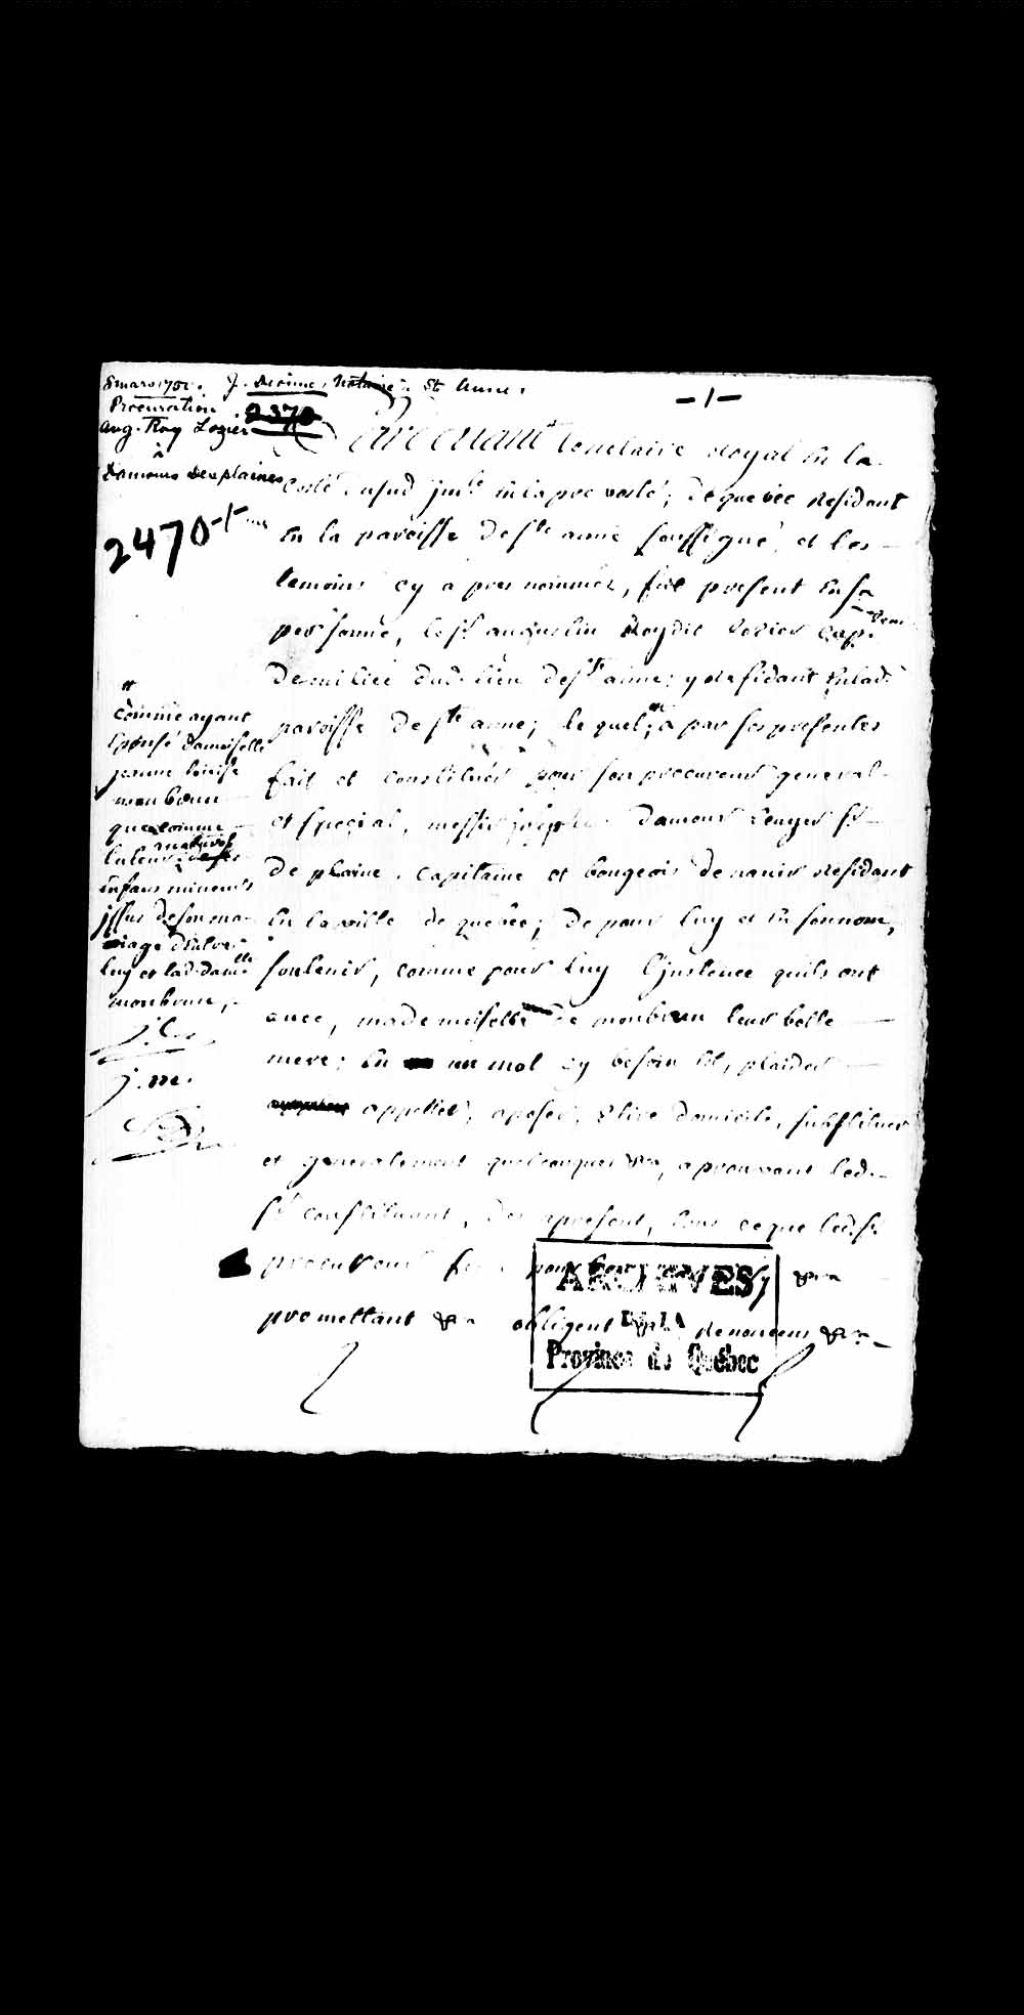 8 mars 175
J. Dionne, Notaire, Ste Anne.
Procuration
2370
Aug. Roy Lozier
à
Damours Desplaines
2470
-1-
notaire Royal En la
Coste du sud en la prevosté, de quebec Residant
En la paroisse de Ste anne soussigné, et les
temoins cy a pres nommés, fut present En sa
personne, le Sr augustin Roy dit Lozier Cap.
De milice dud. lieu de Ste anne; y Residant En lad.
paroisse De Ste anne; le quel, a par ses presentes
fait et Constitués pour son procureur general
et special, messir joseph Damour Sr
De plaine. Capitaine et bougeois de navir Residant
En la ville de quebec; De pour luy et En son nom,
soutenir, comme pour luy l'jnstence quils ont
avec, mademoiselle De monbrun leur belle
mere; En un mot sy besoin Est, plaider
appeller, aposer, Elire domicile, substituer
et generalement quelconques &a, aprouvant led.
Sr constituant, des apresent, tous ce que led. Sr
procureur
promettant &a obligent &a Renoncent &a
comme ayant
Epousé damoiselle
monbrun
que comme
tuteur
Enfans mineurs
jssus de son ma-
riage d'Entre
luy et lad. dam.lle
monbrun,
ARCHIVES
DE LA
Province de Québec